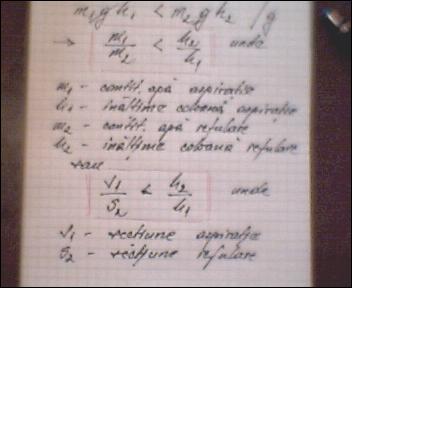 m₁gh₁ < m₂gh₂ /g
→ m₁/m₂ < h₂/h₁ unde
m₁ - cantit. apă aspirație
h₁ - înălțime coloană aspirație
m₂ - cantit. apă refulare
h₂ - înălțime coloană refulare
sau
s₁/s₂ < h₂/h₁ unde
s₁ - secțiune aspirație
s₂ - secțiune refulare